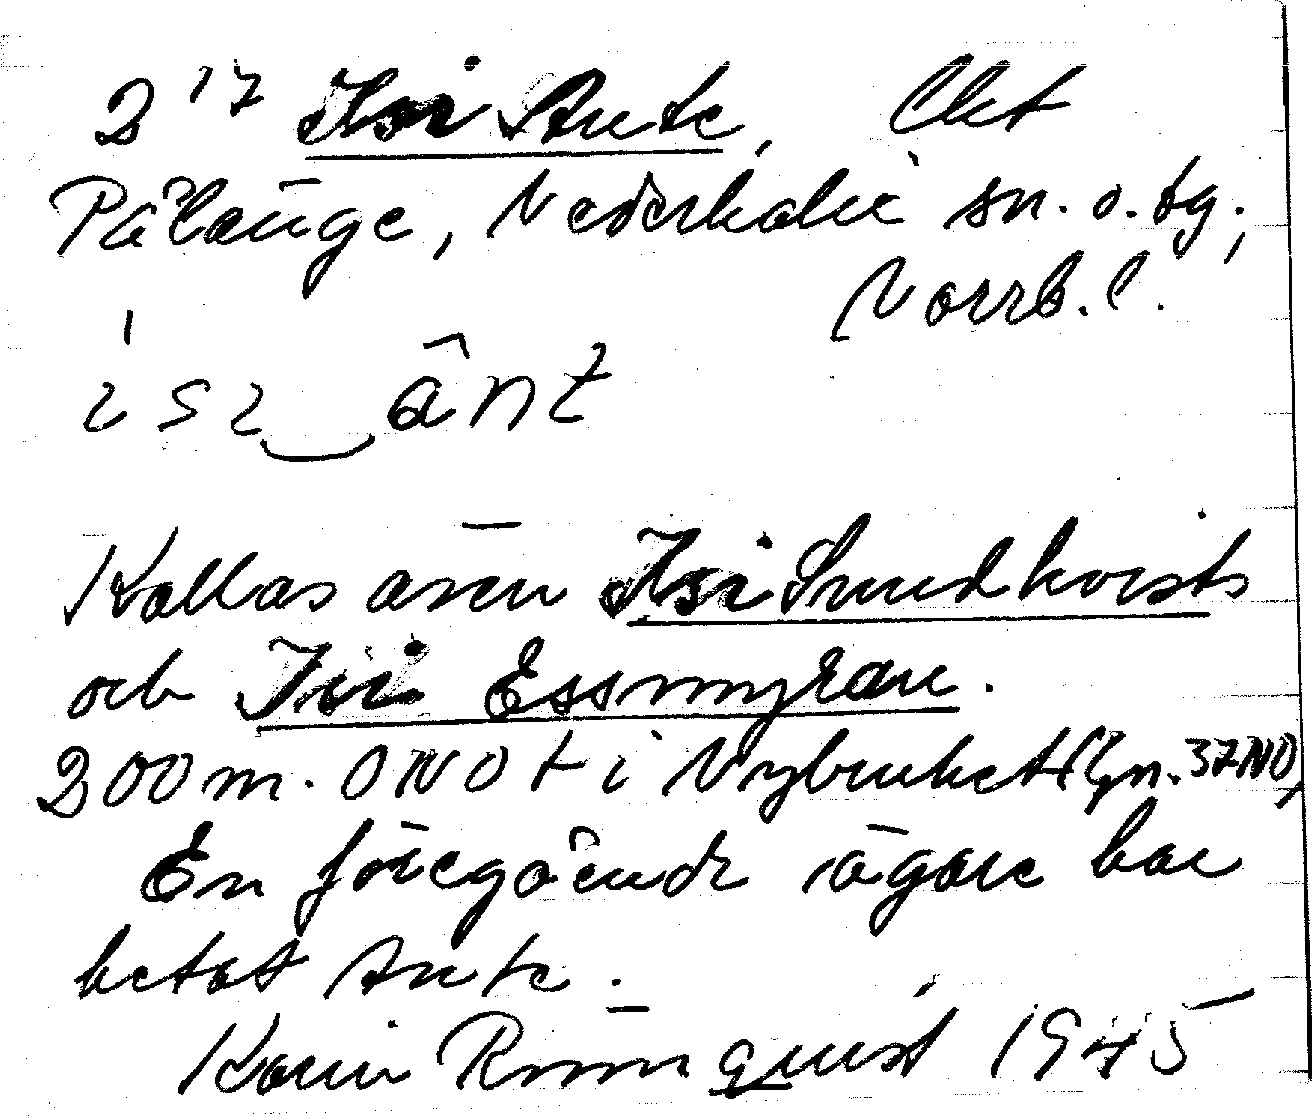 2 17 Isi Ante, Ökt
Pålänge, Nederkalix sn. o. tg.,
Norrb. l.
isi‿ânt
Kallas även Isi Sundkvists
och Isi Essmyran.
200 m. ONO t i Nybruket (Gn. 37 NO)
En föregående ägare har
hetat Ante.
Karin Rönnquist 1945